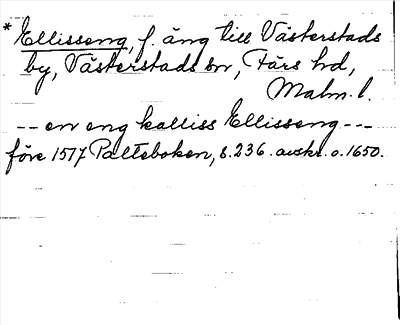 * Ellisseng, f. äng till Västerstads
by, Västerstads sn, Färs hd,
Malm. l.
-- en eng kalliss Ellisseng ---
före 1517 Palteboken, s. 236. avskr. o. 1650.